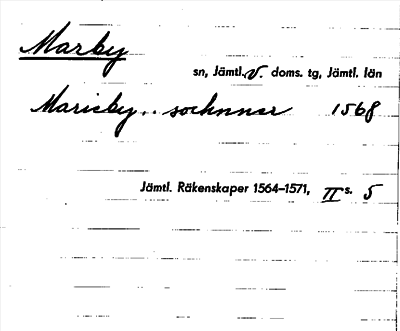 Marby
sn, Jämtl. v. doms. tg, Jämtl. län
Marieby.. sochnner 1568
Jämtl. Räkenskaper 1564–1571, II s. 5